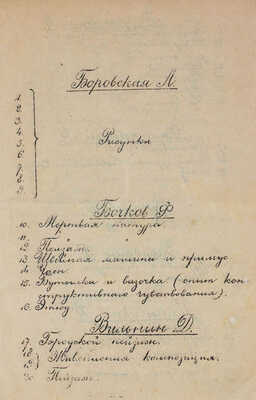 Боровская Л.
1.
2.
3.
4.
5. Рисунки
6.
7.
8.
9.
Бочков Ф
10. Мертвая натура
11.
12. Пейзаж.
13. Швейная машина и примус
14.
15. Бутылки и вазочка (опыт кон-
структивного чувствования).
16. Этюд
Вильнин Д.
17. Городской пейзаж.
18.
19. Живописная композиция.
20. Пейзаж.